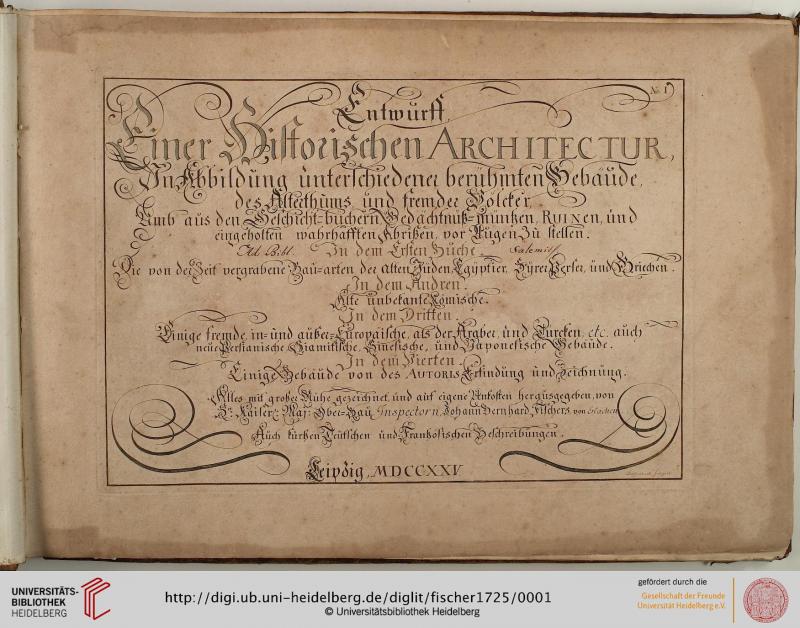 No. 1
Entwurff
Einer Historischen ARCHITECTUR,
In Abbildung unterschiedener berühmten Gebäude,
des Alterthums und fremder Völcker,
Umb aus den Geschicht-büchern, Gedächtnüß-müntzen, RUINEN, und
eingeholten wahrhafften Abrißen, vor Augen zu stellen.
In dem Ersten Buche.
Ad Bibl. Salemit.
Die von der Zeit vergrabene Bau-arten der Alten Juden, Egyptier, Syrer, Perser, und Griechen.
In dem Andren.
Alte unbekante Römische.
In dem Dritten.
Einige fremde, in- und außer-Europäische, als der Araber, und Turcken, etc. auch
neue Persianische, Siamitische, Sinesische, und Japonesische Gebäude.
In dem Vierten.
Einige Gebäude von des AUTORIS Erfindung und Zeichnung.
Alles mit großer Mühe gezeichnet, und auf eigene Unkosten herausgegeben, von
Sr. Kaiserl. Maj. Ober-Bau Inspectorn, Johann Bernhard Fischers, von Erlachen
Auch kurtzen Teutschen und Frantzösischen Beschreibungen.
Leipzig, MDCCXXV
UNIVERSITÄTS-
BIBLIOTHEK
HEIDELBERG
http://digi.ub.uni-heidelberg.de/diglit/fischer1725/0001
© Universitätsbibliothek Heidelberg
gefördert durch die
Gesellschaft der Freunde
Universität Heidelberg e.V.